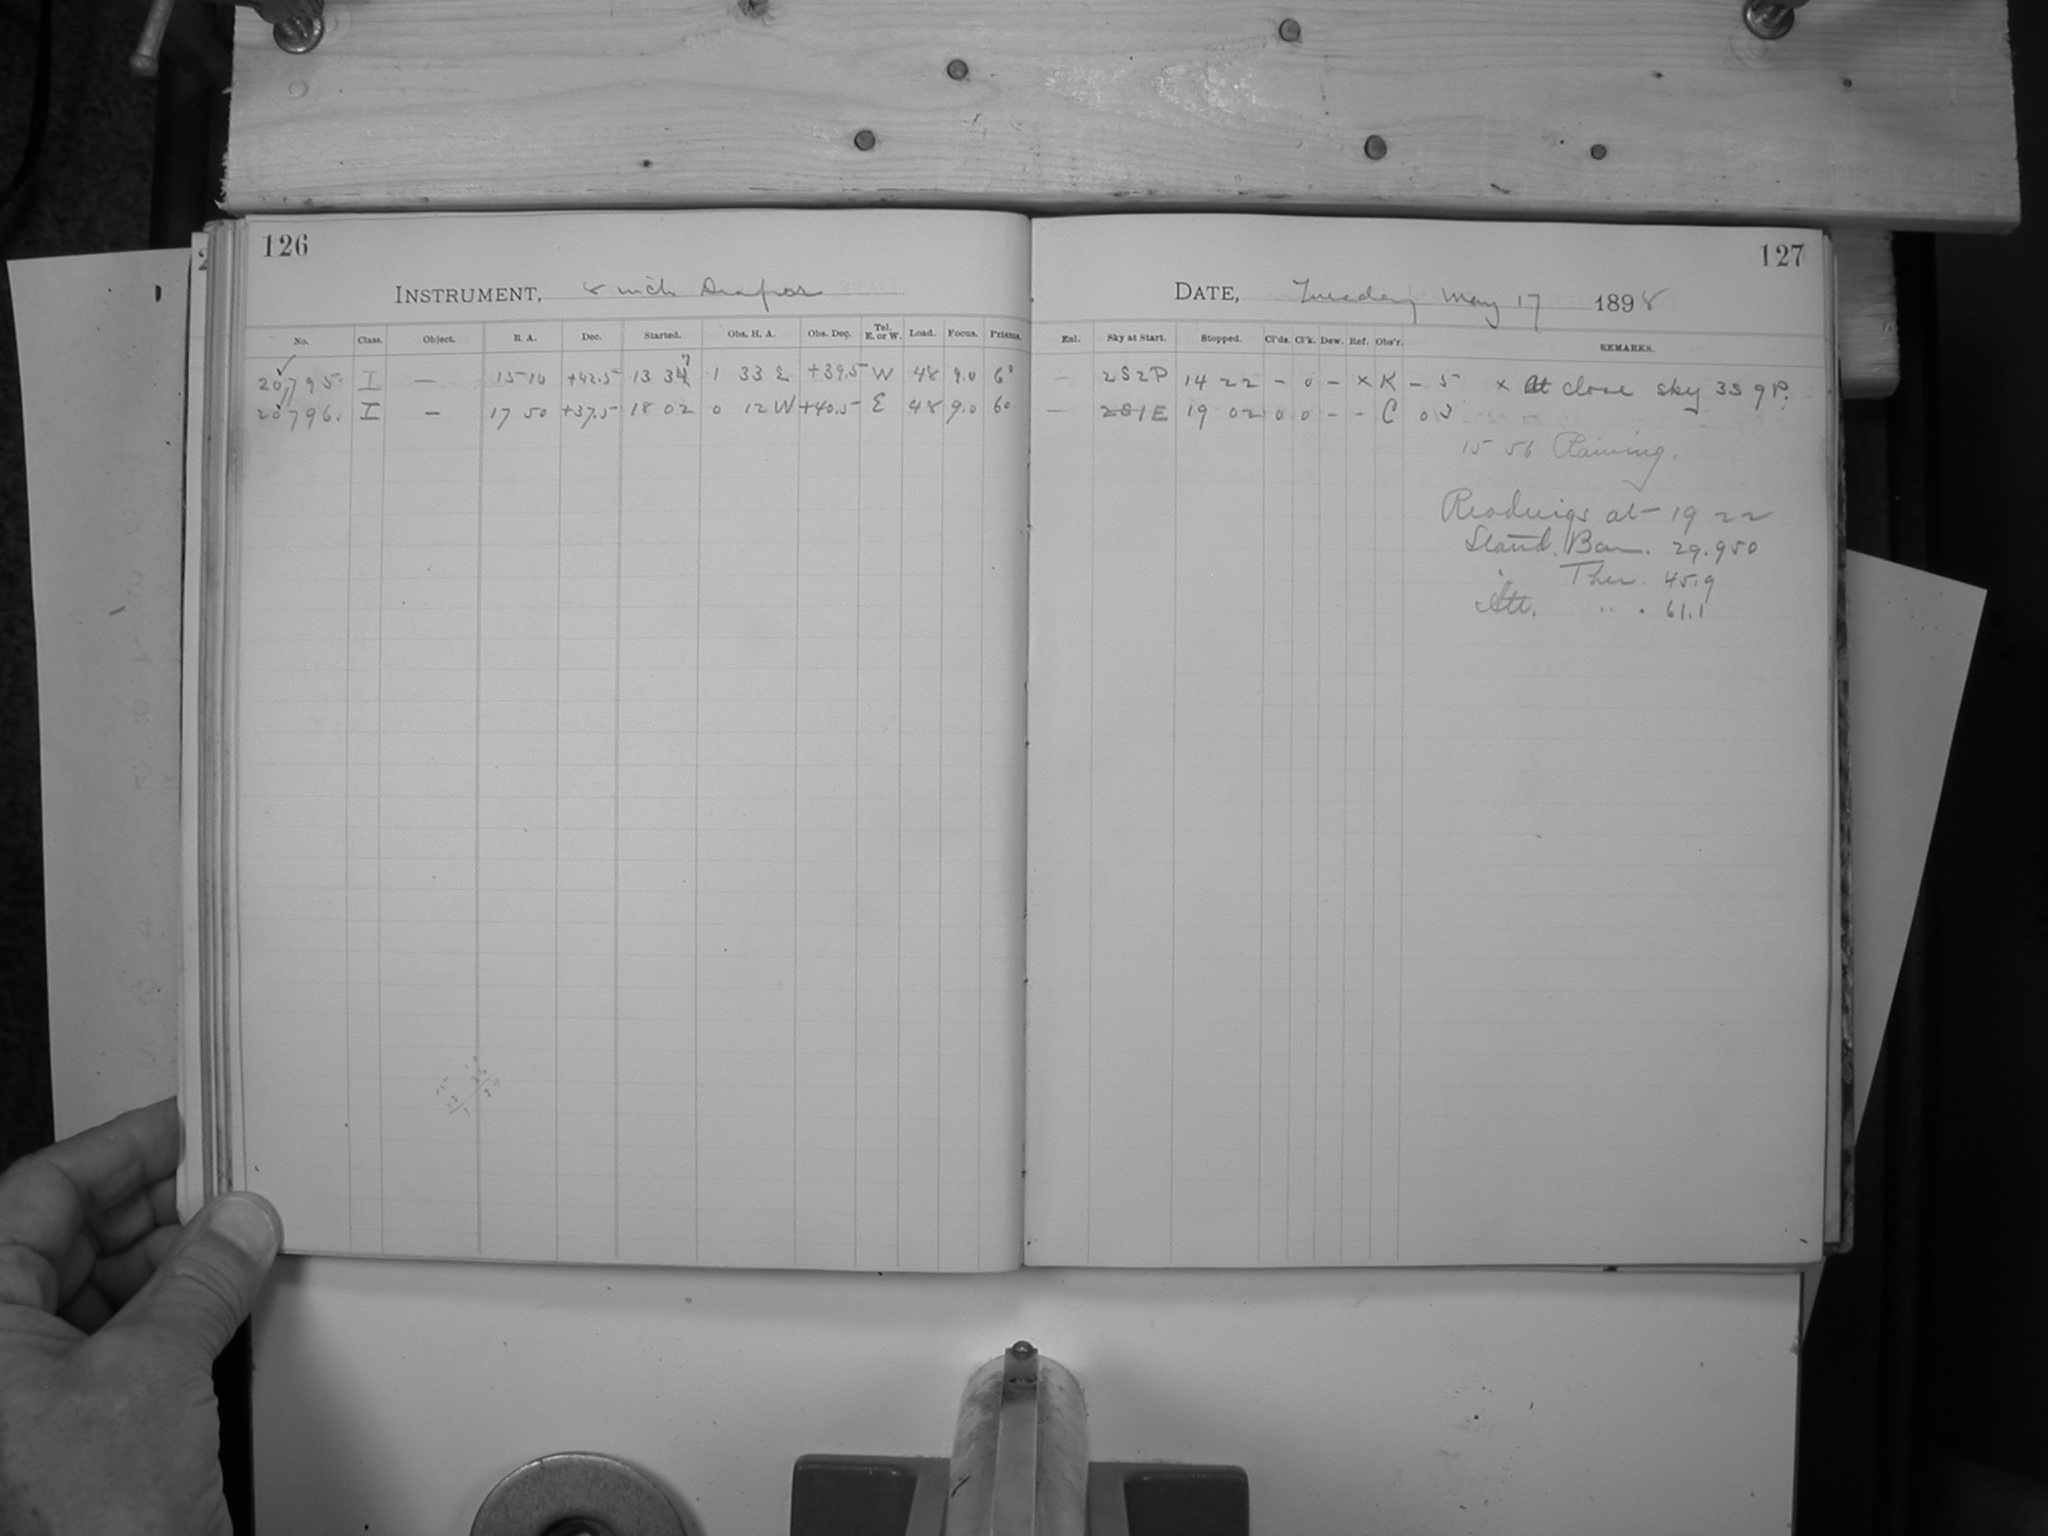 126
INSTRUMENT, 8 inch Draper
No. Class. Object. R. A. Dec. Started. Obs. H. A. Obs. Dec. Tel. E. or W. Load. Focus. Prisms.
20,795. I — 15 10 +42.5 13 34 1 33 E +39.5 W 48 9.0 60
20,796. I — 17 50 +37.5 18 02 0 12 W +40.5 E 48 9.0 60
127
DATE, Tuesday May 17 1898
Enl. Sky at Start. Stopped. Cl'ds. Cl'k. Dew. Ref. Obs'r. REMARKS.
— 2S2P 14 22 – 0 – × K – 5 × At close sky 3S9P.
— 2S1E 19 02 0 0 – – C 0 5
15 56 Raining.
Readings at 19 22
Stand. Bar. 29.950
Ther. 45.9
Att. " . 61.1